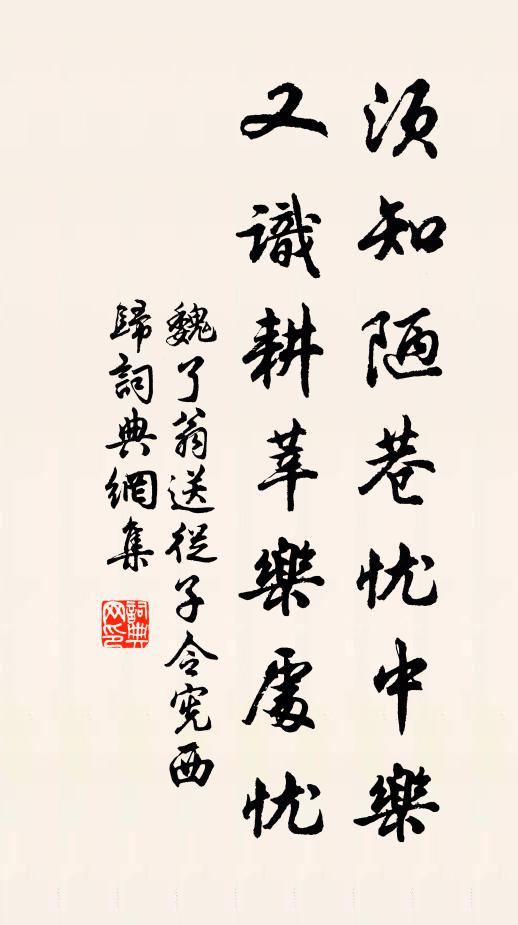 须知陋巷忧中樂
又識耕莘樂處忧
魏了翁送從子令宪西
歸詞典網集
詞典
网印